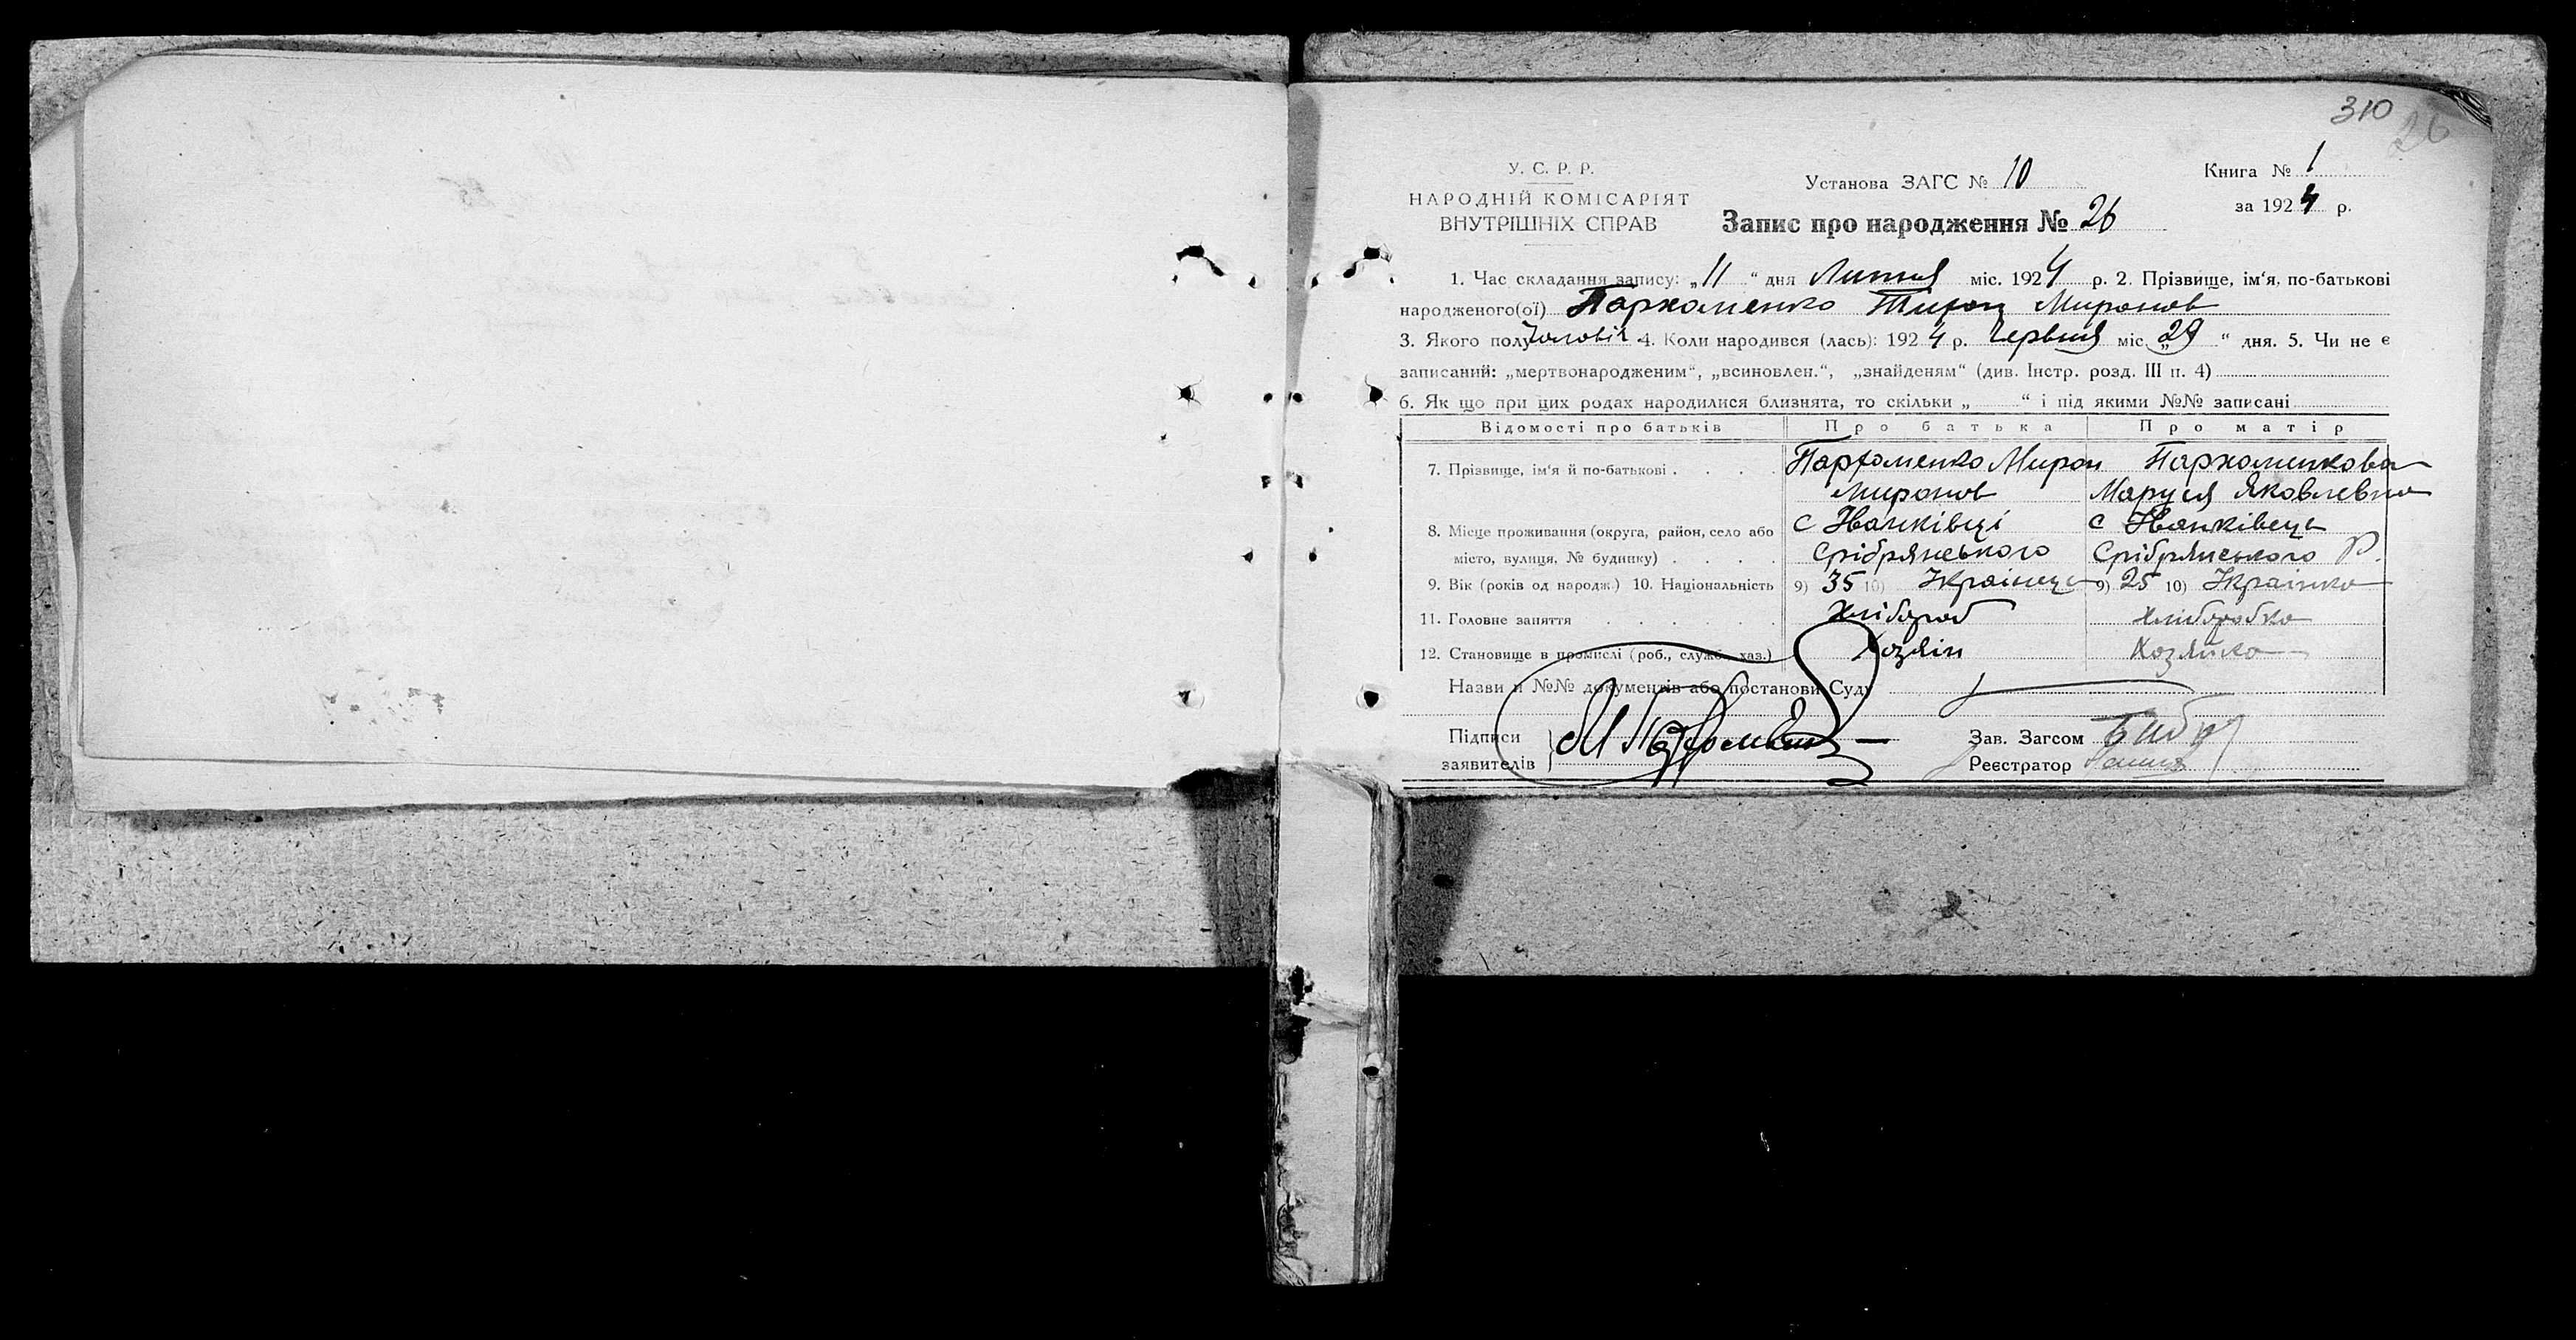 310
26
У. С. Р. Р.
НАРОДНІЙ КОМІСАРІЯТ
ВНУТРІШНІХ СПРАВ
Установа ЗАГС № 10
Книга № 1
за 1924 р.
Запис про народження № 26
1. Час складання запису: „11“ дня Липня міс. 1924 р. 2. Прізвище, ім'я, по-батькові
народженого(ої) Пархоменко Тихон Миронов
3. Якого полу Чоловіч 4. Коли народився (лась): 1924 р. Червня міс. „29“ дня. 5. Чи не є
записаний: „мертвонародженим“, „всиновлен.“, „знайденям“ (див. Інстр. розд. III п. 4)
6. Як що при цих родах народилися близнята, то скільки „ “ і під якими №№ записані
Відомості про батьків Про батька Про матір
7. Прізвище, ім'я й по-батькові . . . . Пархоменко Мирон Пархоменкова
Миронов Маруся Яковлевна
8. Місце проживання (округа, район, село або с Іванківці с Іванківець
місто, вулиця, № будинку) . . . . Срібрянського Срібрянського Р.
9. Вік (років од народж.) 10. Національність 9) 35 10) Украінець 9) 25 10) Украінка
11. Головне заняття . . . . . . Хлібороб Хліборобка
12. Становище в промислі (роб., служб., хаз.) Хозяін Хозяйка
Назви й №№ документів або постанови Суду
Підписи
заявителів М Пархоменко
Зав. Загсом
Реєстратор